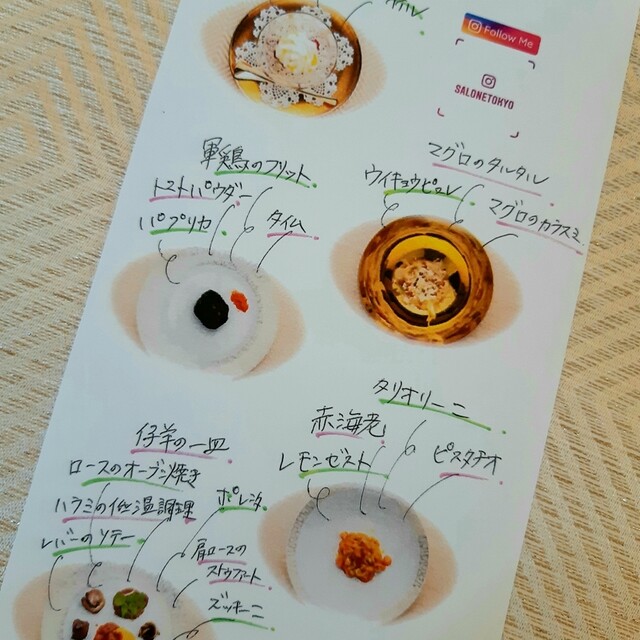 Follow Me
SALONETOKYO
軍鶏のフリット
トマトパウダー
パプリカ
タイム
マグロのタルタル
ウイキョウピュレ
マグロのカラスミ
タリオリーニ
赤海老
レモンゼスト
ピスタチオ
仔羊の一皿
ロースのオーブン焼き
ハラミの低温調理
レバーのソテー
ポレンタ
肩ロースの
ストゥファート
ズッキーニ